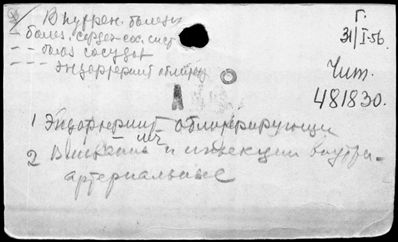 Внутрен. болезни
- болез. сердеч. сос. сист
- - болез сосудов
- - - эндартериит облитер
Г.
31/I-56.
Чит.
481830.
А О
1 Эндартериит облитерирующий
2 и инъекции внутри-
артериальные